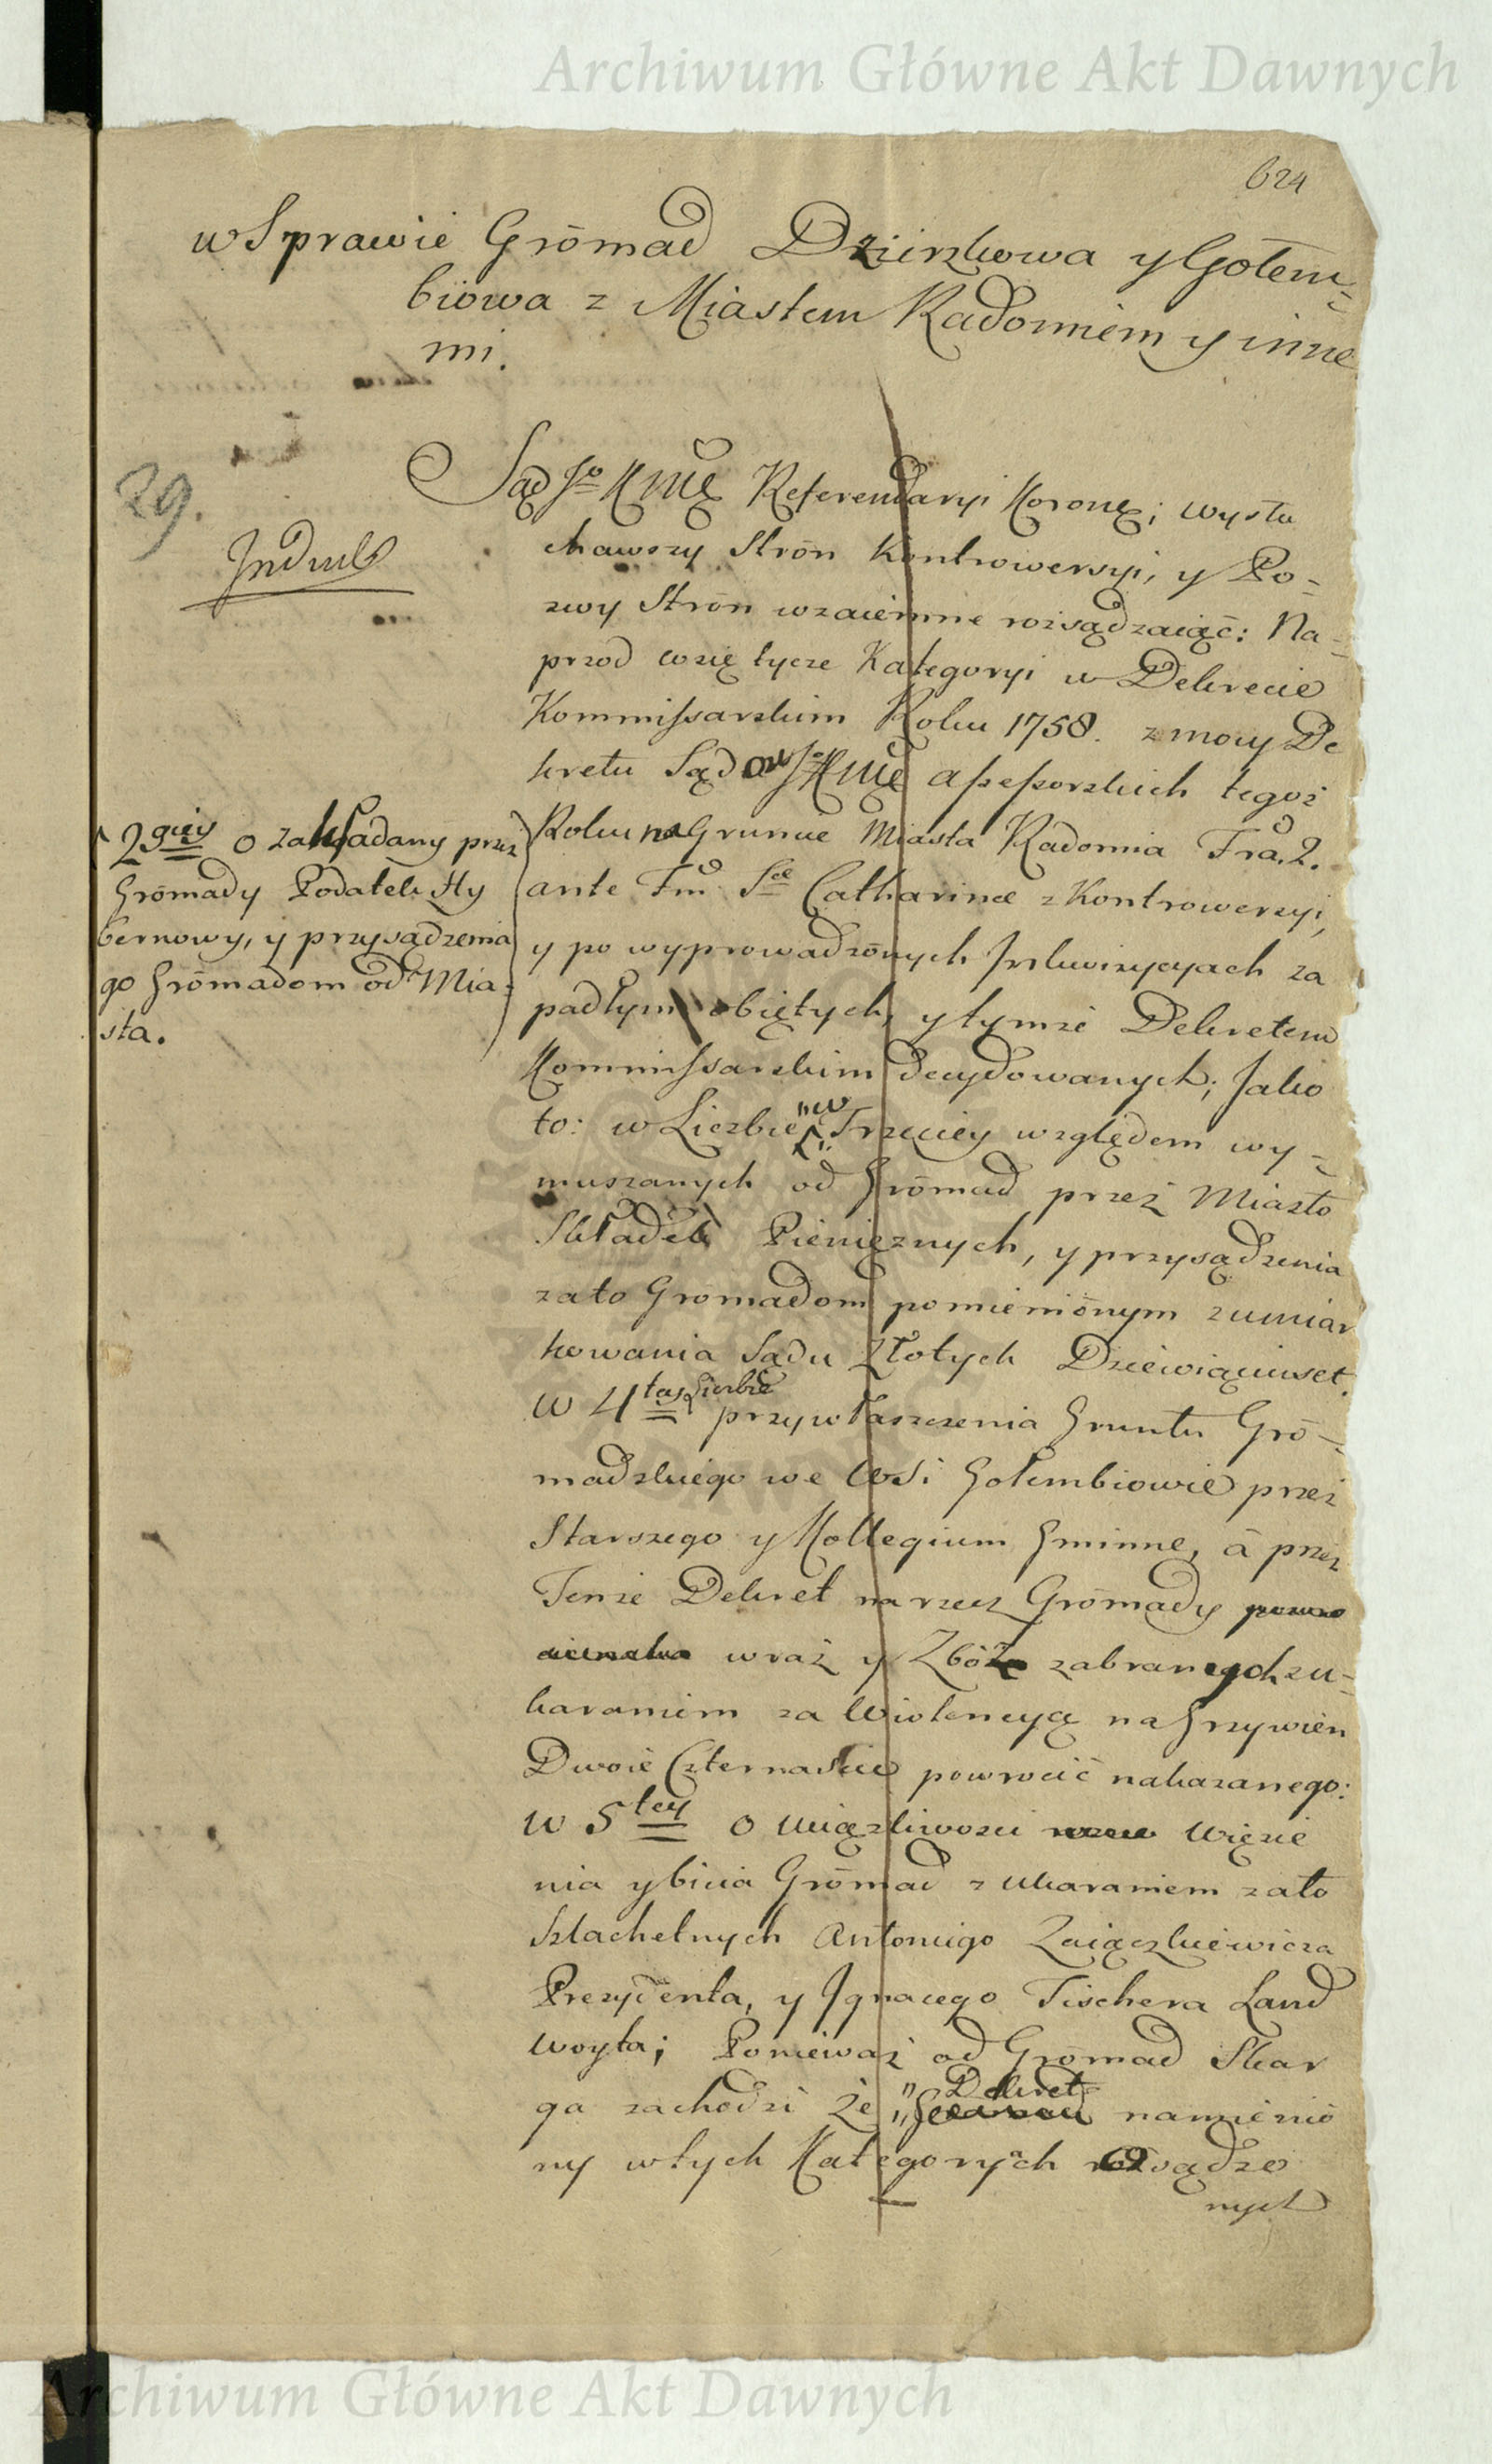 Archiwum Główne Akt Dawnych
624
w Sprawie Grōmad Dzierzkowa y Gołem-
biowa z Miastem Radomiem y inne
mi.
29.
Induct
Sąd Jo K Mći Referendaryi Koronęi wysłu
chawszy Strōn Kontrowersyi, y Po-
zwy Strōn wzaiemne rozsądzaiąć: Na-
przod wzię tycze Kategoryi w Dekrecie
Kommissarskim Roku 1758. z mocy De
kretu Sądow Jo K Mći assessorskich tegoż
Roku na Gruncie Miasta Radomia Fra. 2.
ante Fm Scæ Catharinæ z Kontrowersyi,
y po wyprowadzōnych Inkwizycyach za
padłym obiętych, y tymże Dekretem
Kommissarskim decydowanych; Jako
to: w Liczbie
"w
Trzeciey względem wy-
muszanych od Grōmad przez Miasto
Składek Pieniężnych, y przysądzenia
zato Gromadom pomieniōnym zumiar
kowania Sądu Złotych Dziewiąciuset.
w 4tey Liczbie przywłaszczenia Gruntu Grō-
madzkiego we Wsi Gołembiowie przez
Starszego y Kollegium Gminne, á przez
Tenże Dekret na rzecz Grōmady
wraz y Zboża zabranego z u-
karaniem za Wiolencyą na Grzywien
Dwoie Czternaście powrocić nakazanego:
w 5tey o uciązliwosci Więzie
nia y bicia Grōmad z ukaraniem zato
Szlachetnych Antoniego Zaiączkiewicza
Prezydenta, y Ignacego Tischera Land
woyta; Ponieważ od Grōmad Skar
ga zachodzi że "Dekret namieniō
ny w tych Kategoryach rozsądzo
nych
2giey o zakładany przez
Grōmady Podatek Hy
bernowy, y przysądzenia
go Grōmadom od Mia-
sta.
Archiwum Główne Akt Dawnych